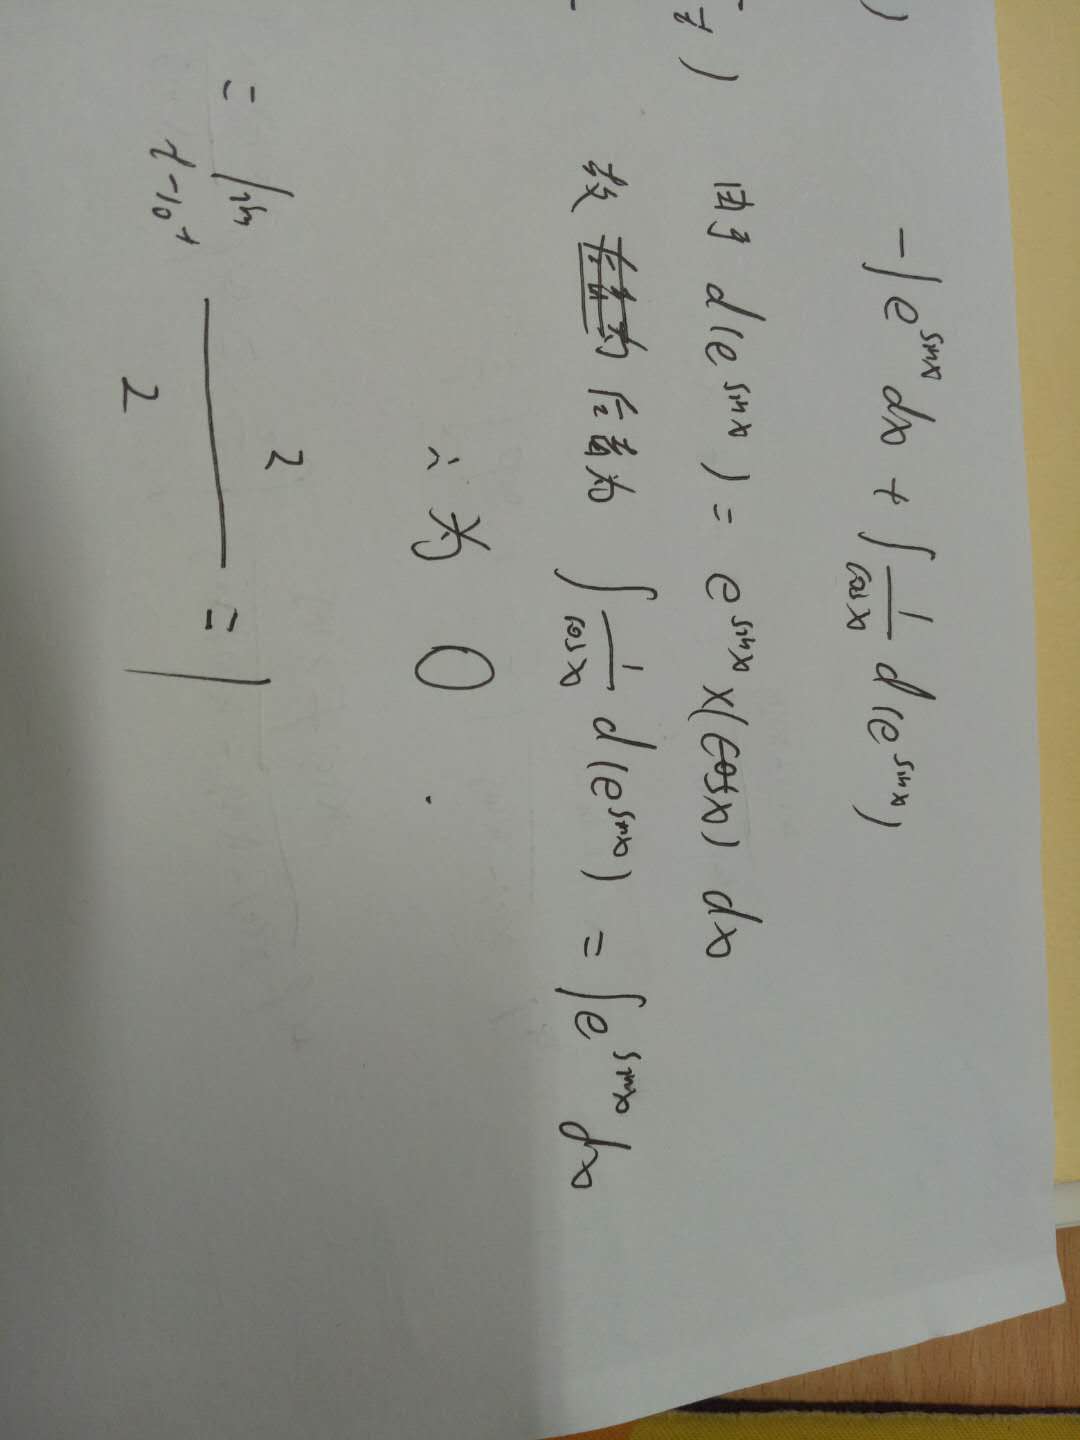 )
-∫e^{sinx} dx + ∫\frac{1}{cosx} d(e^{sinx})
t)
由于 d(e^{sinx}) = e^{sinx} x(cosx) dx
故 后者为 ∫\frac{1}{cosx} d(e^{sinx}) = ∫e^{sinx} dx
∴ 为 0 .
= lim_{t→0^+} \frac{2}{2} = 1